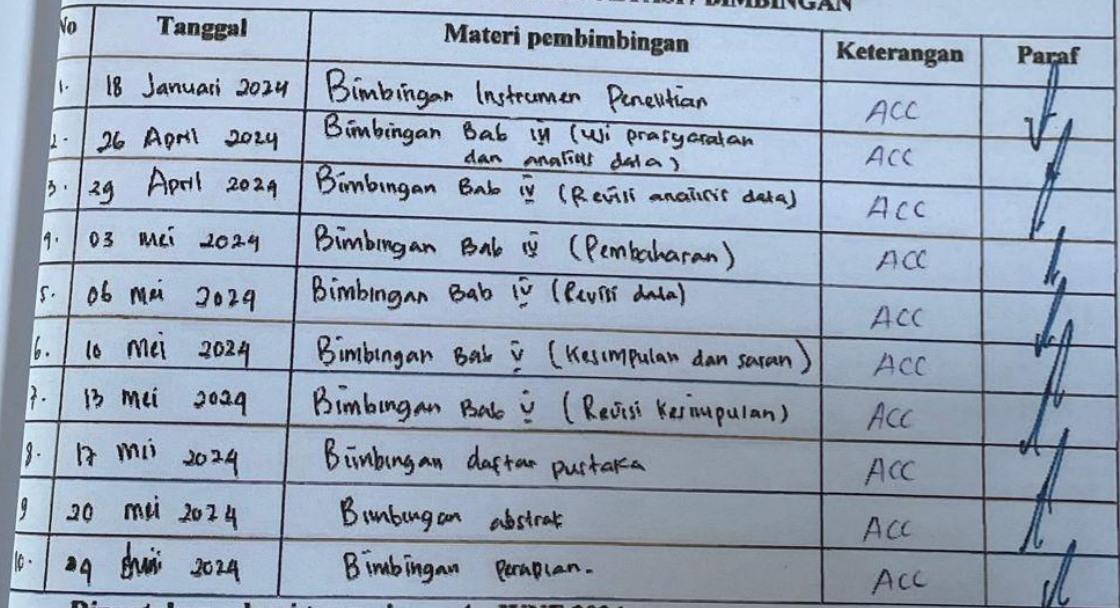 BIMBINGAN
No Tanggal Materi pembimbingan Keterangan Paraf
1. 18 Januari 2024 Bimbingan Instrumen Penelitian ACC
2. 26 April 2024 Bimbingan Bab IV (Uji prasyaratan
dan analisis data) ACC
3. 29 April 2024 Bimbingan Bab IV (Revisi analisis data) ACC
4. 03 Mei 2024 Bimbingan Bab IV (Pembahasan) ACC
5. 06 Mei 2024 Bimbingan Bab IV (Revisi data) ACC
6. 10 Mei 2024 Bimbingan Bab V (Kesimpulan dan saran) ACC
7. 13 Mei 2024 Bimbingan Bab V (Revisi Kesimpulan) ACC
8. 17 Mei 2024 Bimbingan daftar pustaka ACC
9 20 Mei 2024 Bimbingan abstrak ACC
10. 2024 Bimbingan ACC